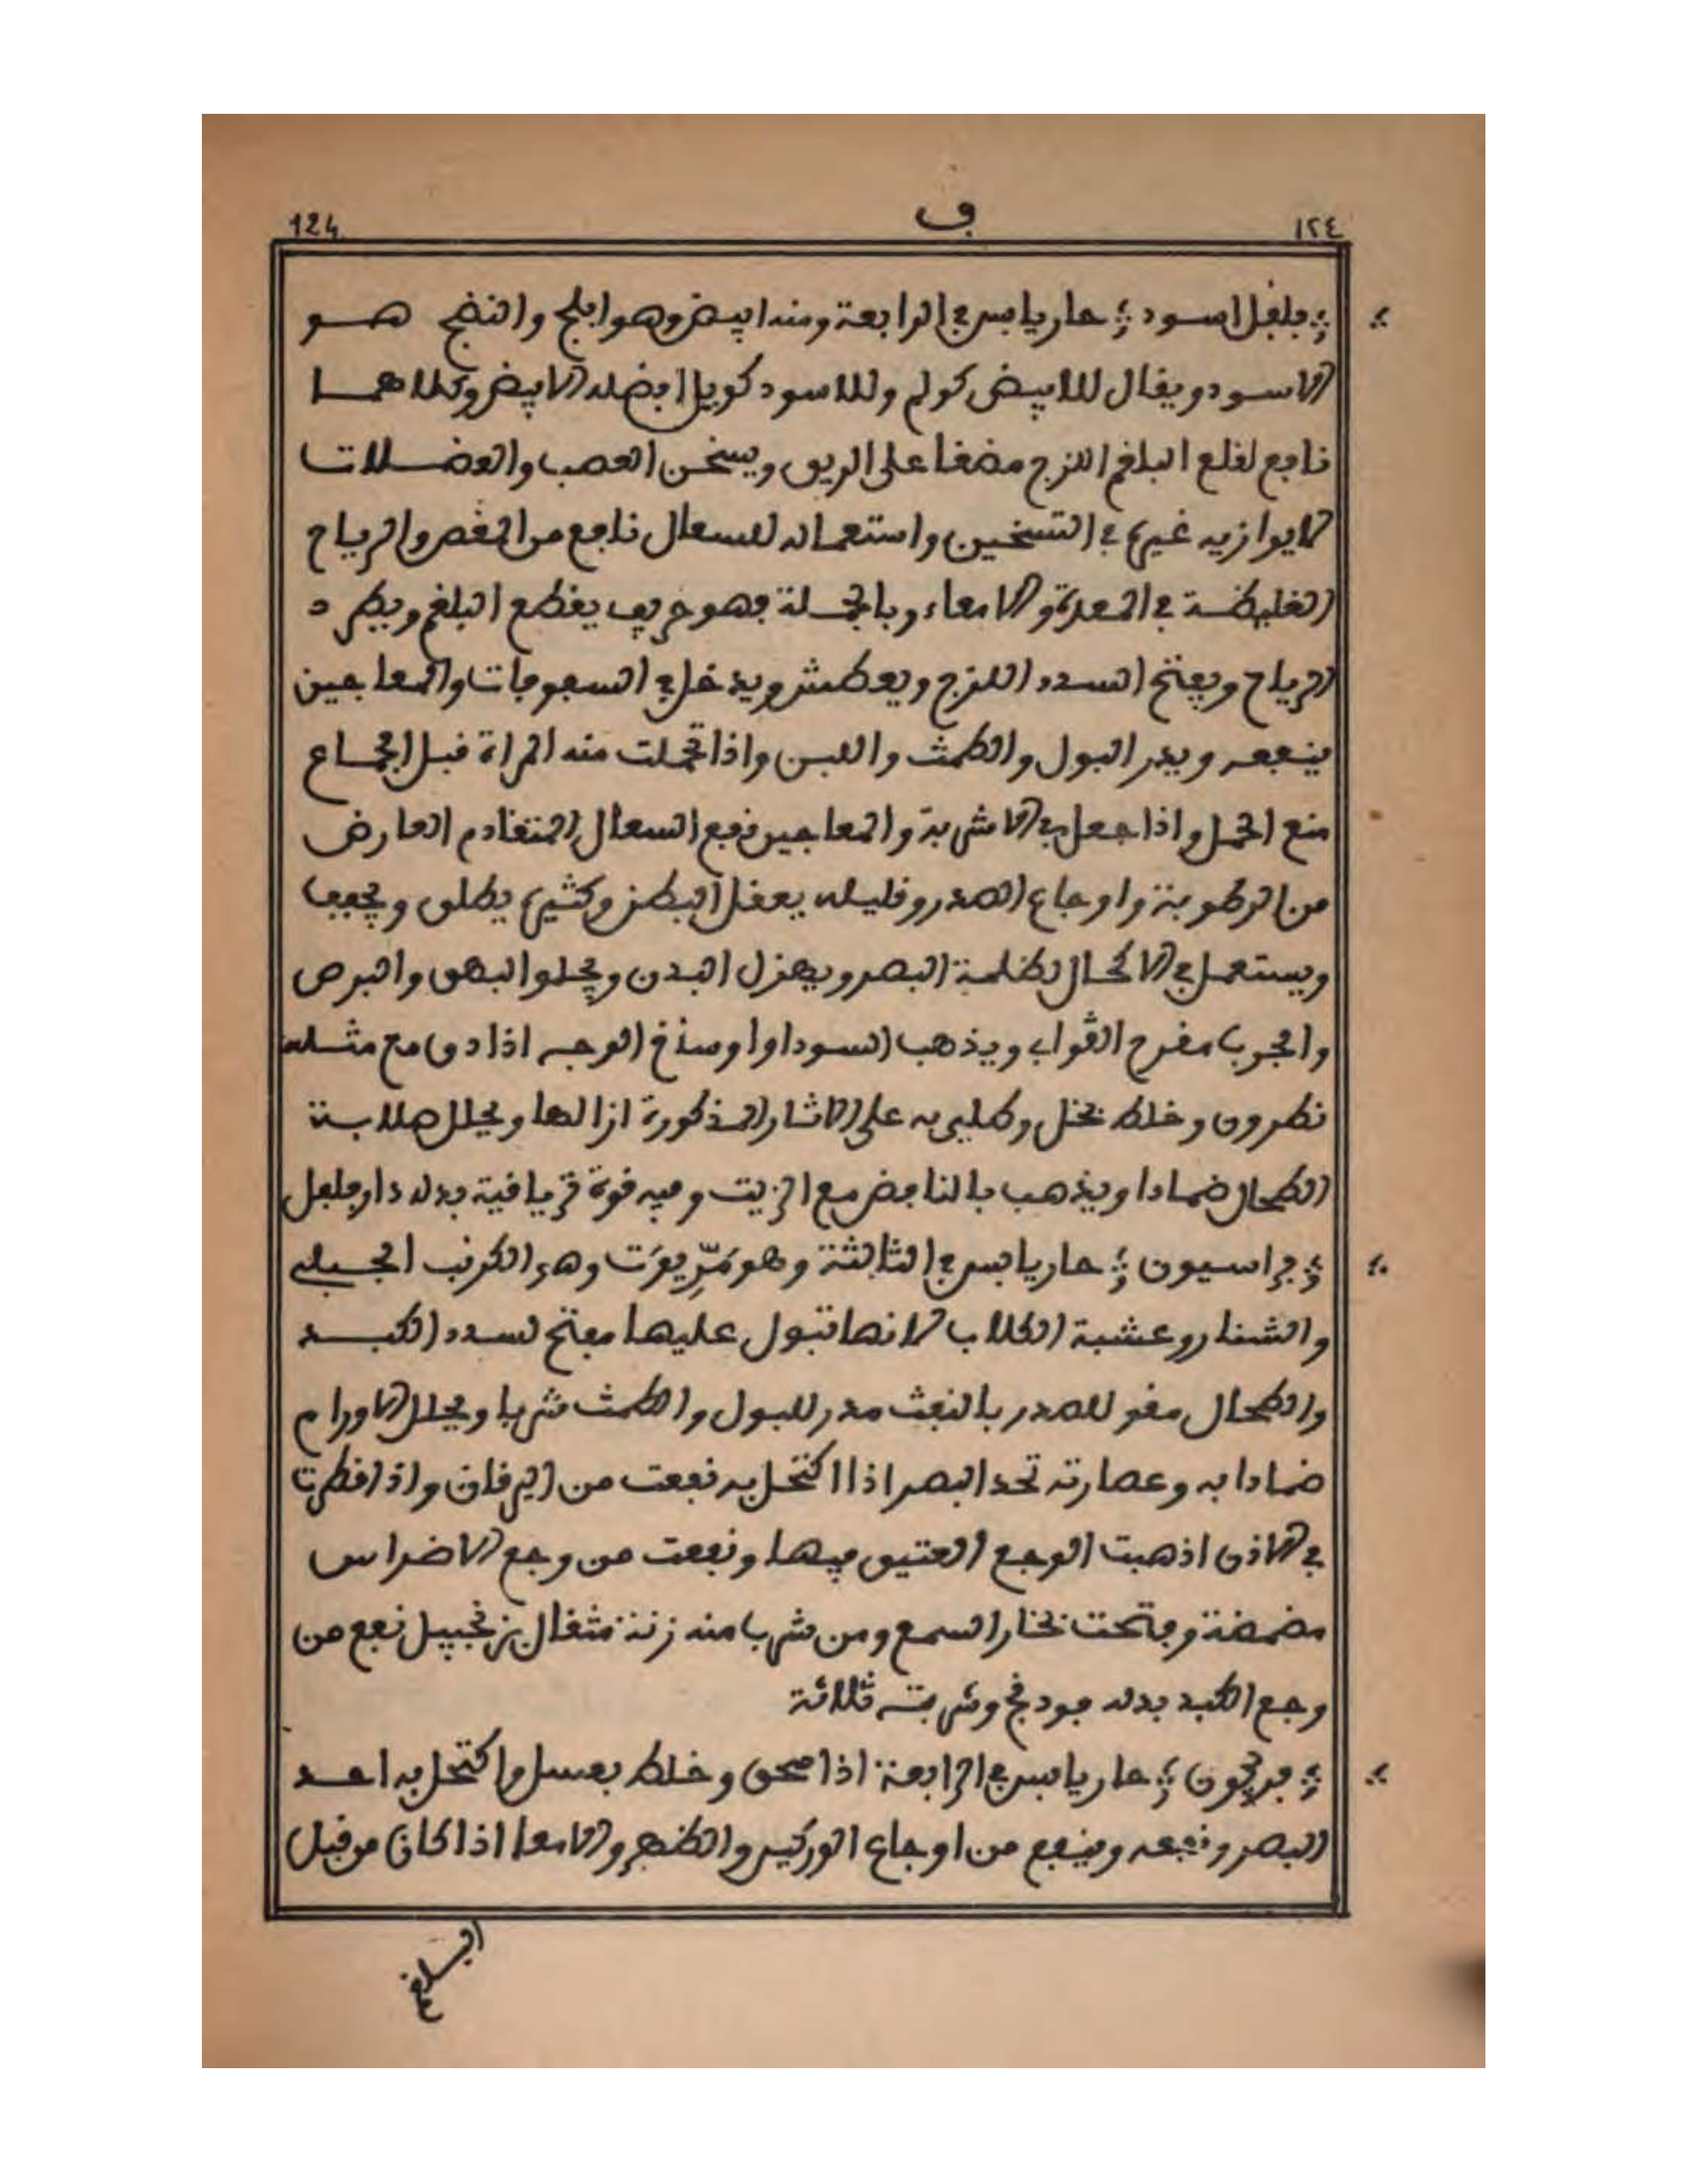 124 ف ١٢٤
فلفل اسود حار يابس في الرابعة ومنه ابيض وهو افلج والنضج هو
الاسود ويقال للابيض كولم وللاسود كويل افضله الابيض وكلاهما
نافع لقلع البلغم اللزج مضغا على الريق ويسخن العصب والعضلات
لا يوازيه غيره في التسخين واستعماله للسعال نافع من المغص والرياح
الغليظة في المعدة والامعاء وبالجملة فهو حريف يقطع البلغم ويطرد
الرياح ويفتح السدد اللزج ويعطش ويدخل في السفوفات والمعاجين
فينفعه ويدر البول والطمث واللبن واذا تحملت منه المراة قبل الجماع
منع الحمل واذا جعل في الاشربة والمعاجين نفع السعال المتقادم العارض
من الرطوبة واوجاع الصدر وقليله يعقل البطن وكثيره يطلق ويجفف
ويستعمل في الاكحال لظلمة البصر ويهزل البدن ويجلوا البهق والبرص
والجرب مفرح القواب ويذهب السودا واوساخ الوجه اذا دق مع مثله
نطرون وخلط بخل وطلي به على الاثار المذكورة ازالها ويحلل صلابة
الطحال ضمادا ويذهب بالنافض مع الزيت وفيه قوة ترياقية بدله دار فلفل
فراسيون حار يابس في الثالثة وهو مَرِّيوَت وهي الكرنب الجبلي
والشنار وعشبة الكلاب لانها تبول عليها مفتح لسدد الكبد
والطحال مقو للصدر بالنفث مدر للبول والطمث شربا ويحلل الاورام
ضمادا به وعصارته تحد البصر اذا اكتحل به نفعت من اليرقان واذا قطرت
في الاذن اذهبت الوجع العتيق فيها ونفعت من وجع الاضراس
مضمضة وفتحت بخار السمع ومن شرب منه زنة مثقال بزنجبيل نفع من
وجع الكبد بدله فودنج وشربته ثلاثة
فرفيون حار يابس في الرابعة اذا سحق وخلط بعسل واكتحل به احد
البصر ونفعه وينفع من اوجاع الوركين والظهر والامعا اذا كان من قبل
البلغم